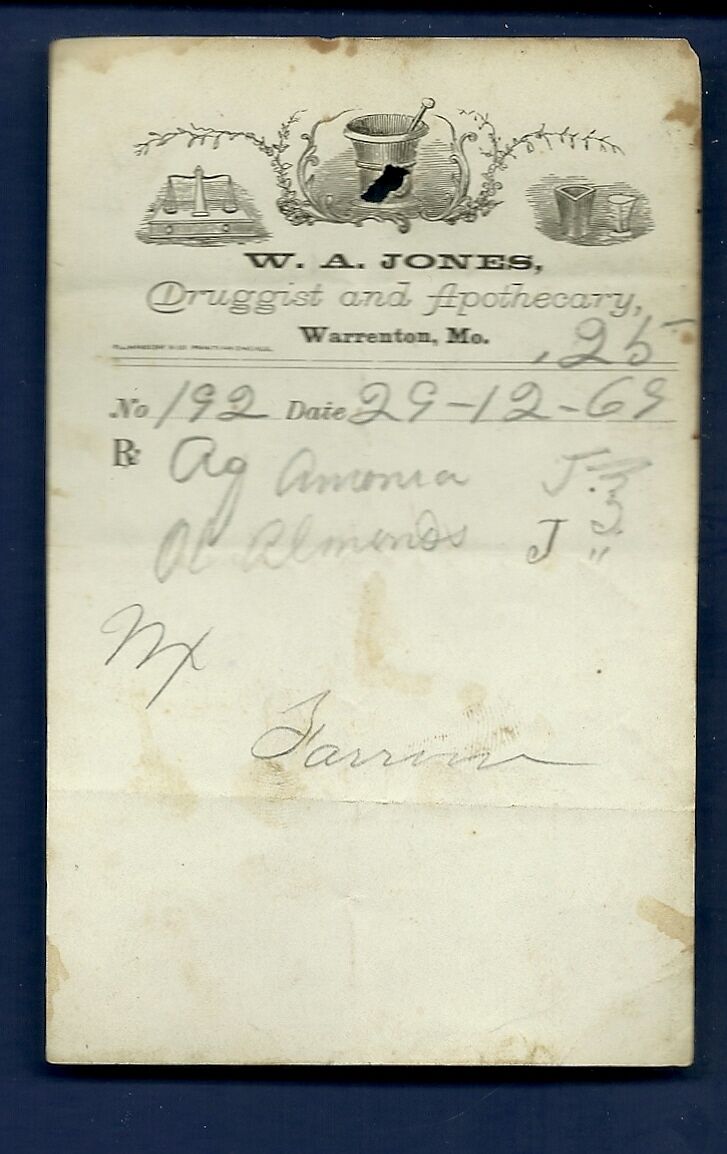 W. A. JONES,
Druggist and Apothecary,
Warrenton, Mo.
.25
No 192 Date 29-12-69
Rx Aq Amonia
Ol Almonds J "
Mx
Farrow